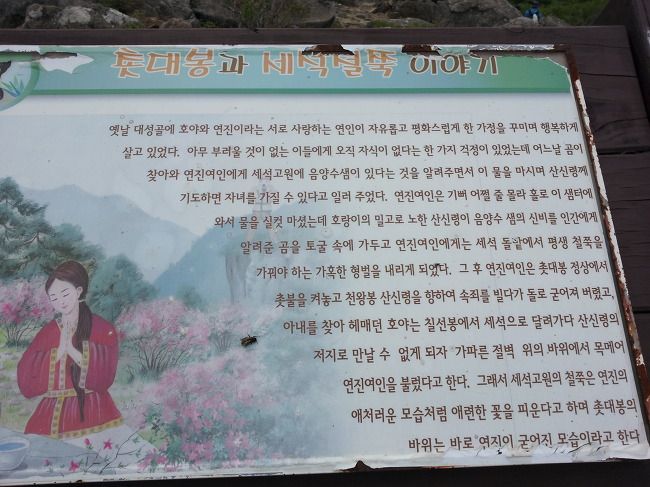 촛대봉과 세석철쭉 이야기
옛날 대성골에 호야와 연진이라는 서로 사랑하는 연인이 자유롭고 평화스럽게 한 가정을 꾸미며 행복하게
살고 있었다. 아무 부러울 것이 없는 이들에게 오직 자식이 없다는 한 가지 걱정이 있었는데 어느날 곰이
찾아와 연진여인에게 세석고원에 음양수샘이 있다는 것을 알려주면서 이 물을 마시며 산신령께
기도하면 자녀를 가질 수 있다고 일러 주었다. 연진여인은 기뻐 어쩔 줄 몰라 홀로 이 샘터에
와서 물을 실컷 마셨는데 호랑이의 밀고로 노한 산신령이 음양수 샘의 신비를 인간에게
알려준 곰을 토굴 속에 가두고 연진여인에게는 세석 돌밭에서 평생 철쭉을
가꿔야 하는 가혹한 형벌을 내리게 되었다. 그 후 연진여인은 촛대봉 정상에서
촛불을 켜놓고 천왕봉 산신령을 향하여 속죄를 빌다가 돌로 굳어져 버렸고,
아내를 찾아 헤매던 호야는 칠선봉에서 세석으로 달려가다 산신령의
저지로 만날 수 없게 되자 가파른 절벽 위의 바위에서 목메어
연진여인을 불렀다고 한다. 그래서 세석고원의 철쭉은 연진의
애처러운 모습처럼 애련한 꽃을 피운다고 하며 촛대봉의
바위는 바로 연진이 굳어진 모습이라고 한다